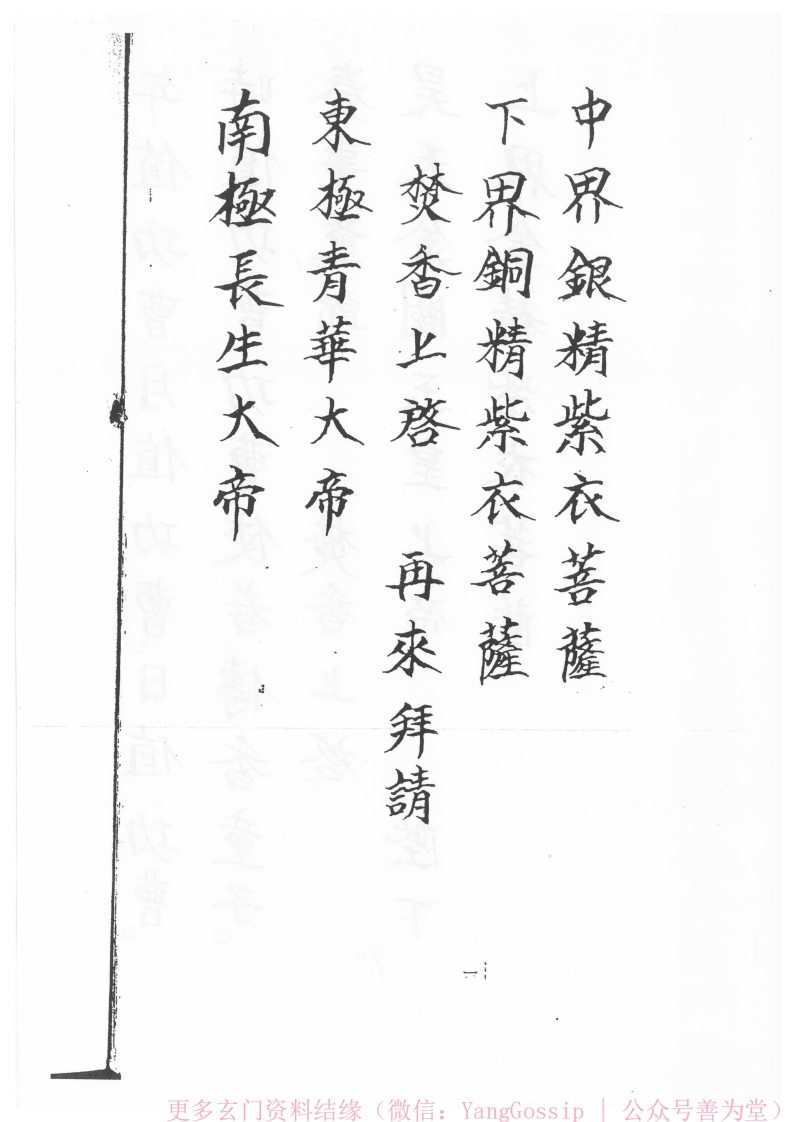 中界銀精紫衣菩薩
下界銅精紫衣菩薩
焚香上啓　再來拜請
東極青華大帝
南極長生大帝
一
更多玄门资料结缘（微信：YangGossip | 公众号善为堂）